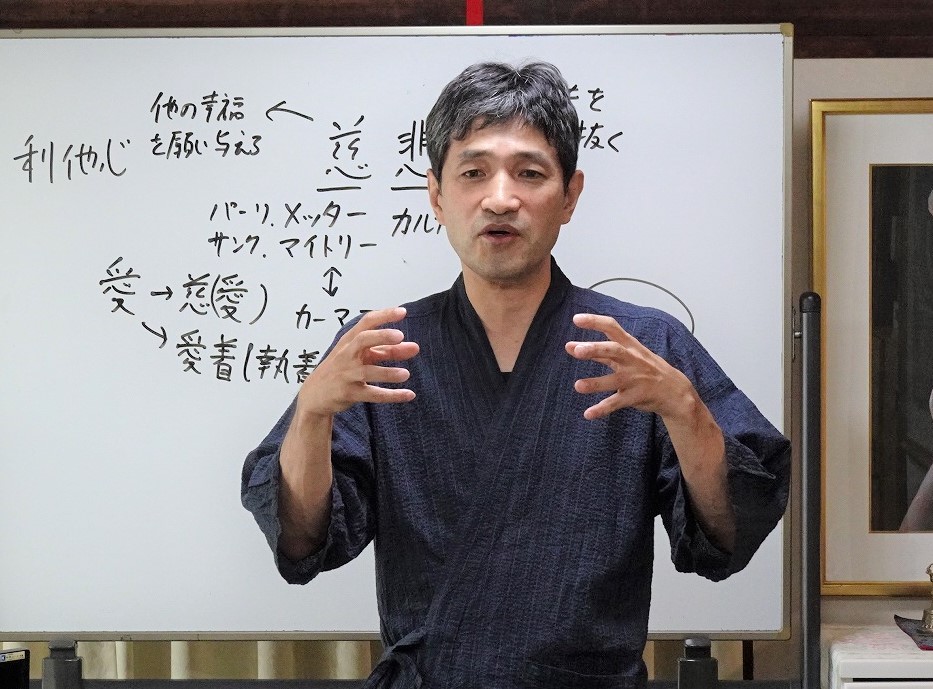 利他心
他の幸福 ←
を願い与える
慈 悲
を
抜く
パーリ. メッター
サンク. マイトリー
カル
↕
カーマ
愛 → 慈(愛)
↘ 愛着(執着